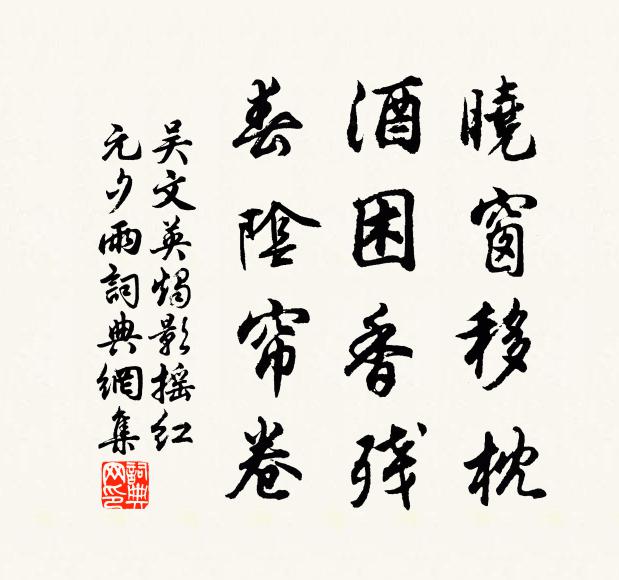 曉窗移枕
酒困香残
春陰帘卷
吴文英燭影摇红
元夕雨詞典網集
詞典网印